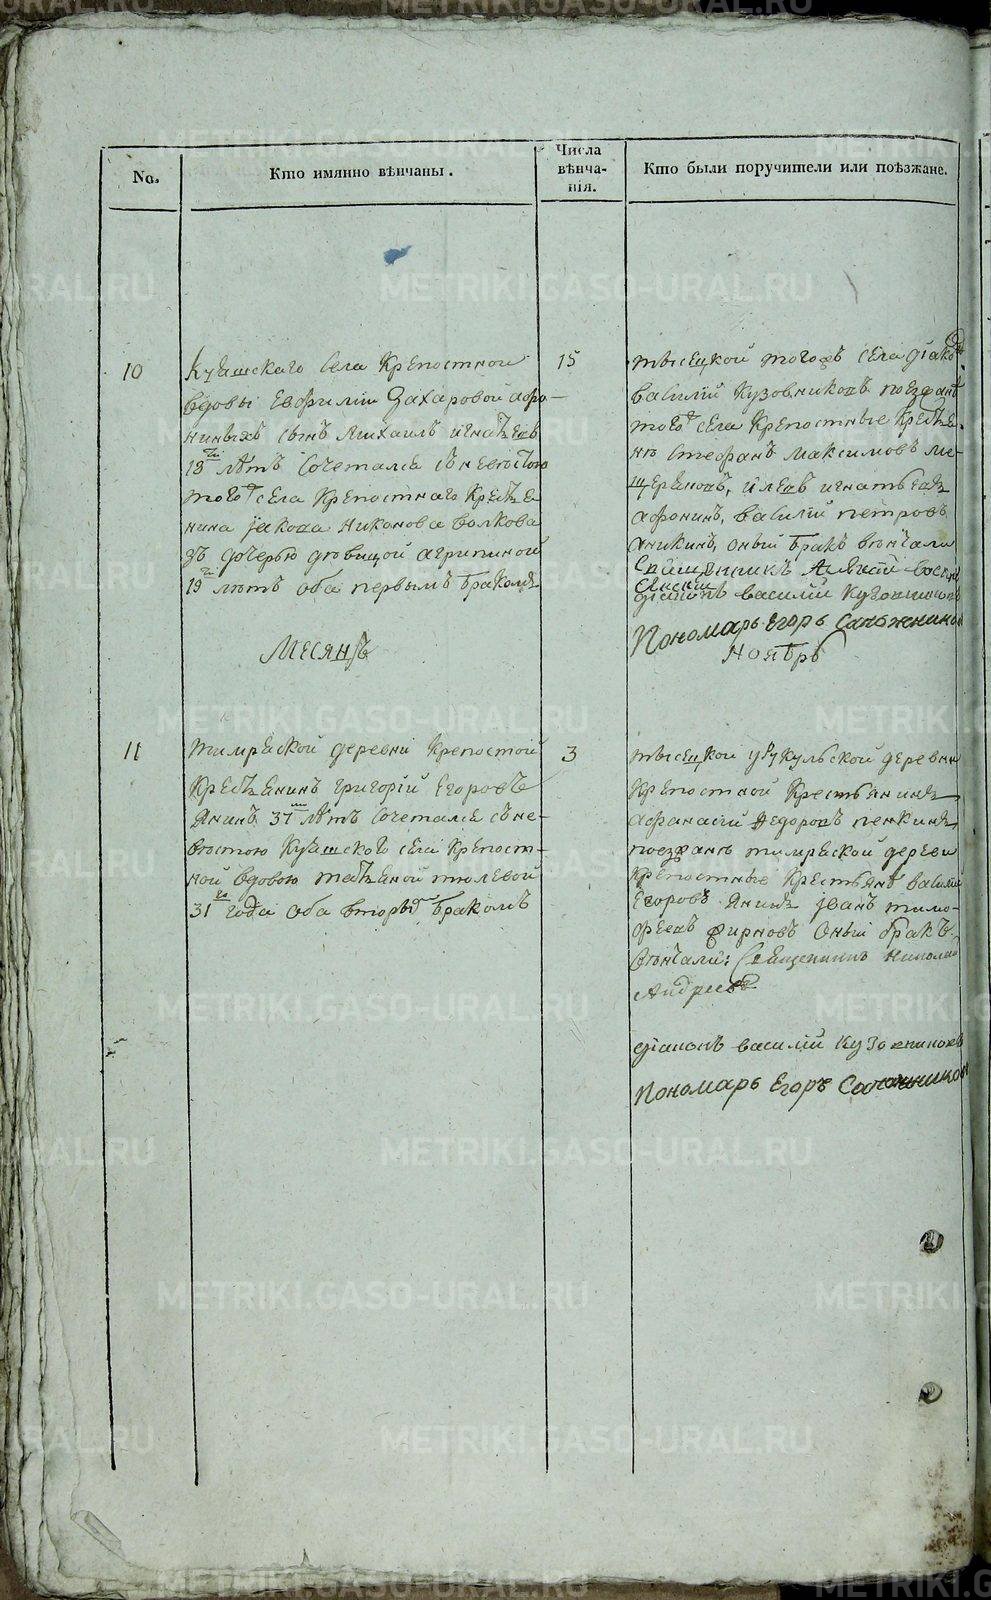 No.
Кто имянно вѣнчаны.
Числа
вѣнча-
нія.
Кто были поручители или поѣзжане.
10
Куяшскаго Села Крепостной
вдовы Евфиміи Захаровой афо-
ниныхъ сынъ Михаилъ игнатьевъ
18 лѣтъ Сочетался съ невестою
того села Крепостнаго Крестья
нина Іакова Никонова Волкова
съ дочерью девицой агрипиной
19 лѣтъ оба первымъ бракомъ
15
тысецкой тогожъ села діако
василій Кузовниковъ поезжанѣ
того села Крепостные Крестья
не Стефанъ Максимовъ ме-
щеряковъ, и левъ игнатьевъ
афонинъ, василій петровъ
Аникинъ, оный бракъ венчали
Священникъ
діаконъ василій Кузовниковъ
Пономарь Егоръ Сапожников
Месяцъ
Ноябрь
11
деревни Крепостой
Крестьянинъ григорій Егоровъ
Янинъ 37 лѣтъ Сочетался съ не-
вестою Куяшского села Крепост-
ной вдовою татьяной
31 года оба вторыъ бракомъ
3
тысецкой деревни
Крепостной Крестьянинъ
афанасій Федоровъ пенкинъ
поезжанѣ деревни
крепостные Крестьянѣ василій
Егоровъ Янинъ Іванъ тимо-
феевъ Оный бракъ
венчали: Священникъ Николай
Андреевъ
діаконъ василій Кузовниковъ
Пономарь Егоръ Сапожников
METRIKI.GASO-URAL.RU